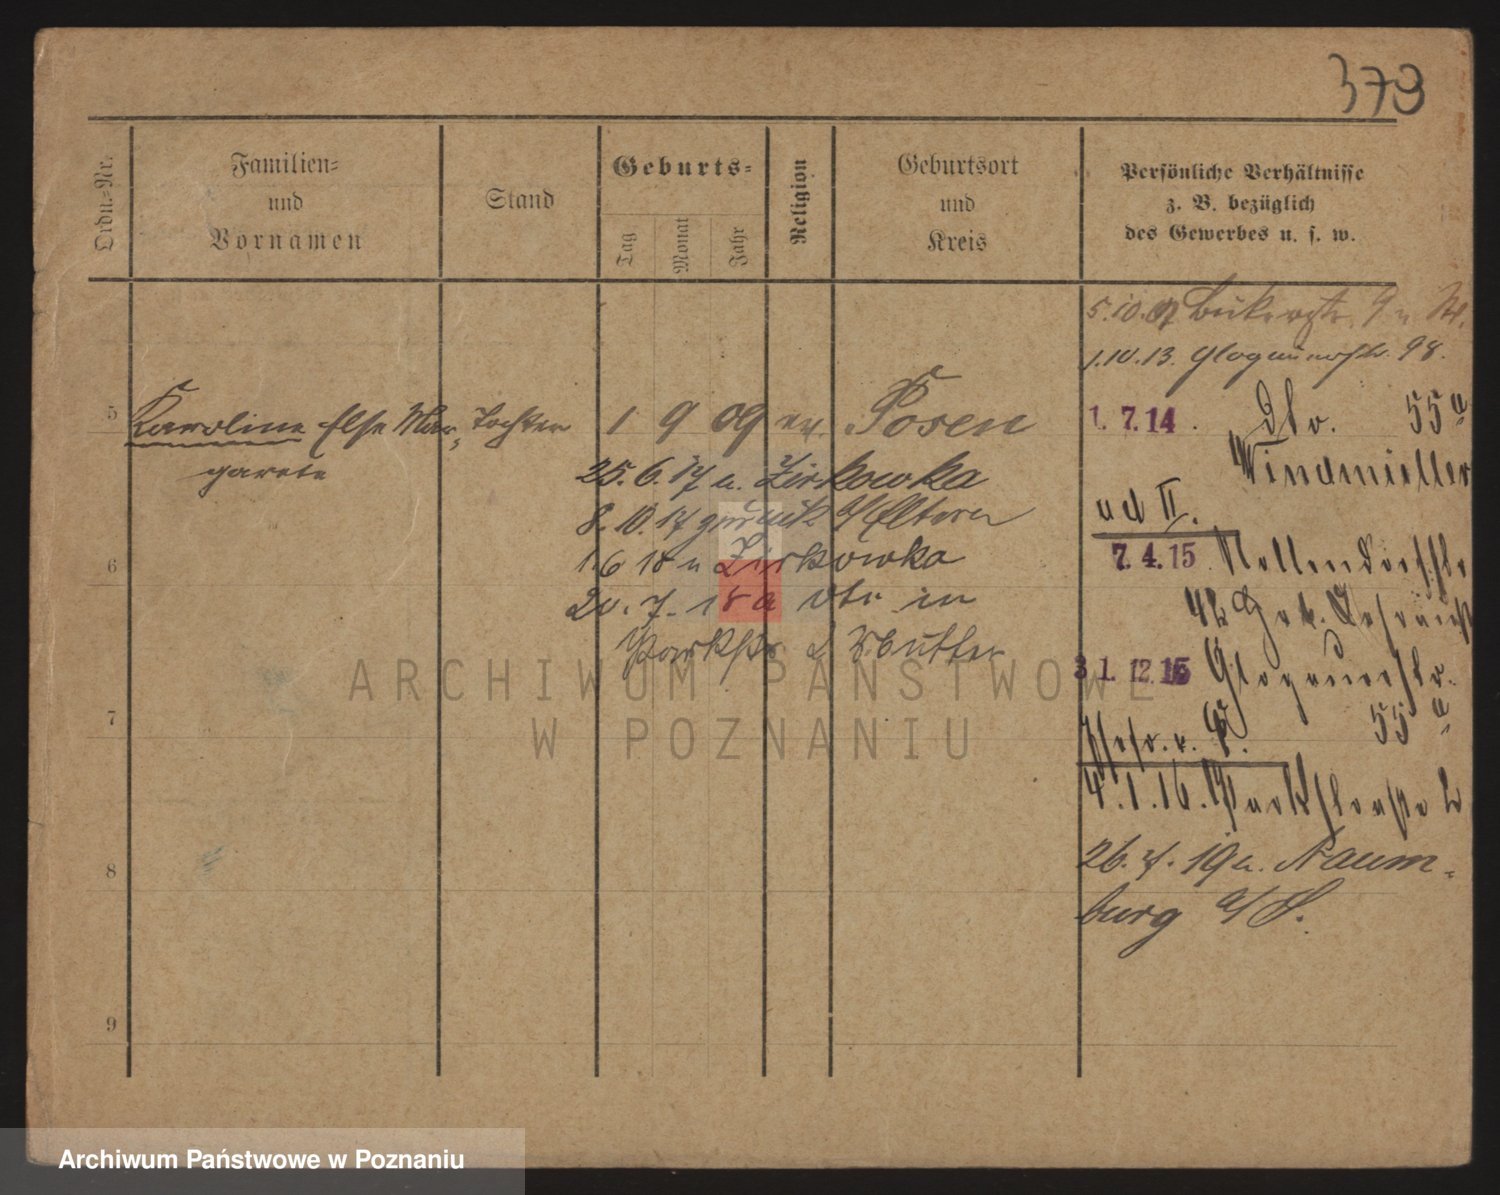 373
Ordn.-Nr.
Familien-
und
Vornamen
Stand
Geburts-
Tag
Monat
Jahr
Religion
Geburtsort
und
Kreis
Persönliche Verhältnisse
z. B. bezüglich
des Gewerbes u. s. w.
5.10.07 Bukerstr. 9
1.10.13. Glogauerstr. 98.
5 Karoline Else Mar- Tochter 1 9 09 ev. Posen
garete
1. 7.14. Dto. 55a
Windmüller
25. 6. 17 n. Zirkowka
8. 10. 17 zurück Eltern
ad II.
6 1. 6 18 n Zirkowka
7. 4. 15. Nollendorfstr.
20. 7. 18 a dto in
Parkstr 2 Mutter
31. 12. 15 Glogauerstr.
55a
7
4.1.16. Parkstrasse 2
8
26. 4. 19 n. Naum-
burg a/S.
9
ARCHIWUM PAŃSTWOWE
W POZNANIU
Archiwum Państwowe w Poznaniu